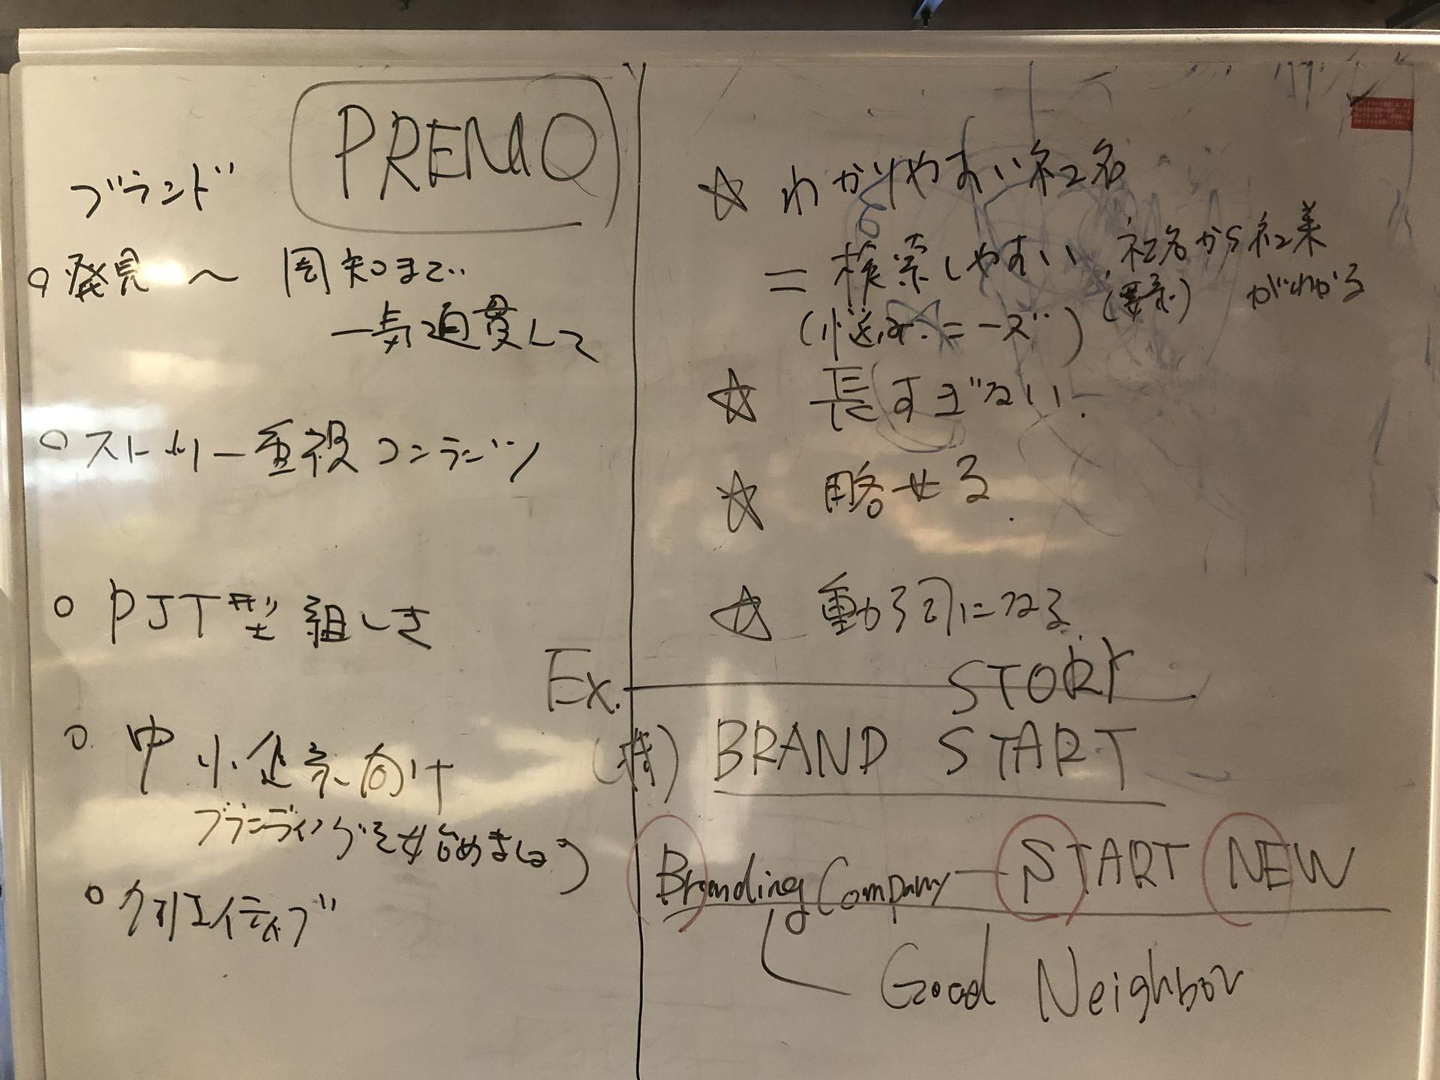 PREMO
ブランド
○発見～周知まで
一気通貫して
○ストーリー重視コンテンツ
○PJT型組しき
○中小企業向け
ブランディングを始めましょう
○クリエイティブ
☆ わかりやすい社名
=検索しやすい
社名から社業
がわかる
(悩み.ニーズ)
☆ 長すぎない.
☆ 略せる.
☆ 動詞になる
Ex.
STORY
(株) BRAND START
Branding Company—START NEW
Good Neighbor